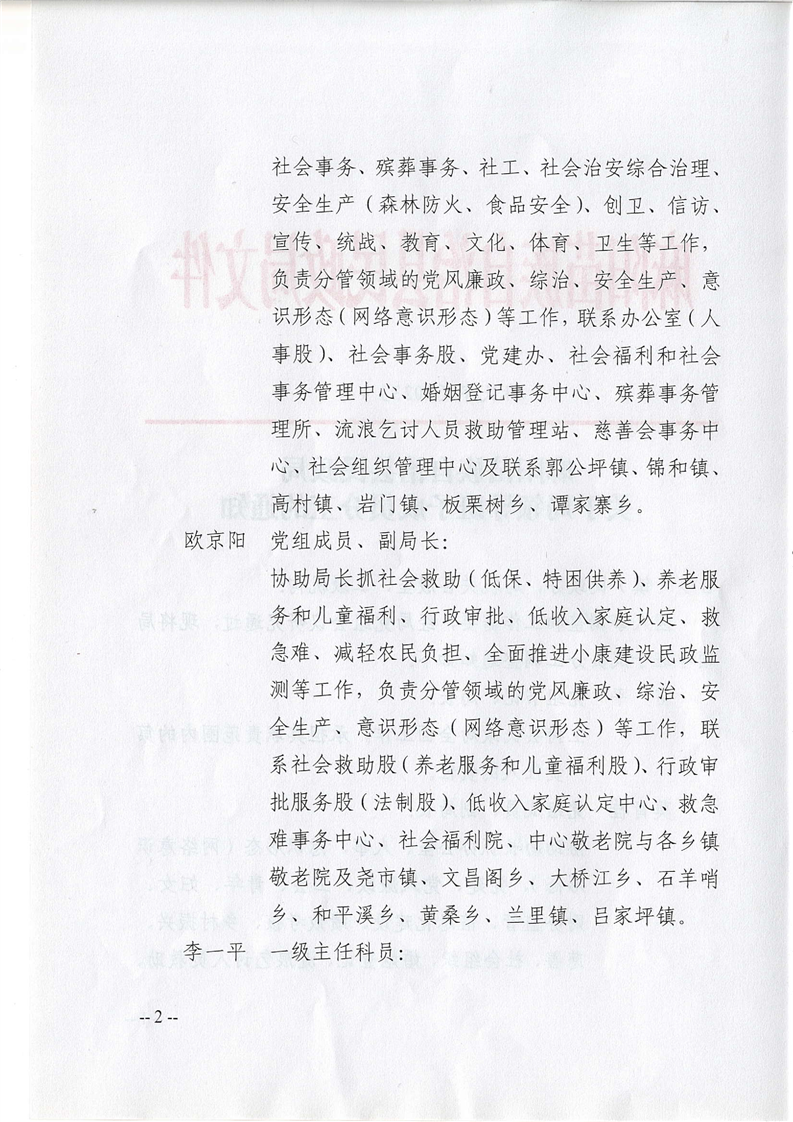 社会事务、殡葬事务、社工、社会治安综合治理、
安全生产（森林防火、食品安全）、创卫、信访、
宣传、统战、教育、文化、体育、卫生等工作，
负责分管领域的党风廉政、综治、安全生产、意
识形态（网络意识形态）等工作，联系办公室（人
事股）、社会事务股、党建办、社会福利和社会
事务管理中心、婚姻登记事务中心、殡葬事务管
理所、流浪乞讨人员救助管理站、慈善会事务中
心、社会组织管理中心及联系郭公坪镇、锦和镇、
高村镇、岩门镇、板栗树乡、谭家寨乡。
欧京阳 党组成员、副局长：
协助局长抓社会救助（低保、特困供养）、养老服
务和儿童福利、行政审批、低收入家庭认定、救
急难、减轻农民负担、全面推进小康建设民政监
测等工作，负责分管领域的党风廉政、综治、安
全生产、意识形态（网络意识形态）等工作，联
系社会救助股（养老服务和儿童福利股）、行政审
批服务股（法制股）、低收入家庭认定中心、救急
难事务中心、社会福利院、中心敬老院与各乡镇
敬老院及尧市镇、文昌阁乡、大桥江乡、石羊哨
乡、和平溪乡、黄桑乡、兰里镇、吕家坪镇。
李一平 一级主任科员：
-- 2 --